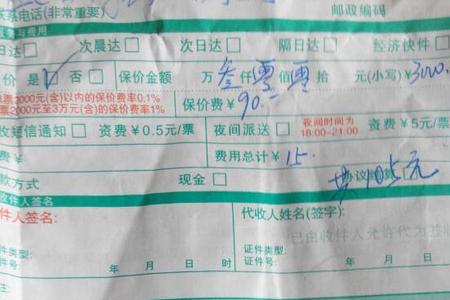 联系电话(非常重要) 邮政编码
与费用
日达□ 次晨达□ 次日达□ 隔日达□ 经济快件□
价 是☑ 否□ 保价金额 万 叁仟 零佰 零拾 元(小写)¥3000.
票2000元(含)以内的保价费率0.1%
票2000元至3万元(含)的保价费率1% 保价费¥90.—
收短信通知□ 资费¥0.5元/票 夜间派送□ 夜间时间为 18:00-21:00 资费¥5元/票
费用总计¥15.
款方式 现金□ 协议 共105元
件人签名
件人签名: 代收人姓名(签字):
已由收件人允许代为签收
证件类型: 证件类型:
证件号: 证件号:
年 月 日 时 年 月 日